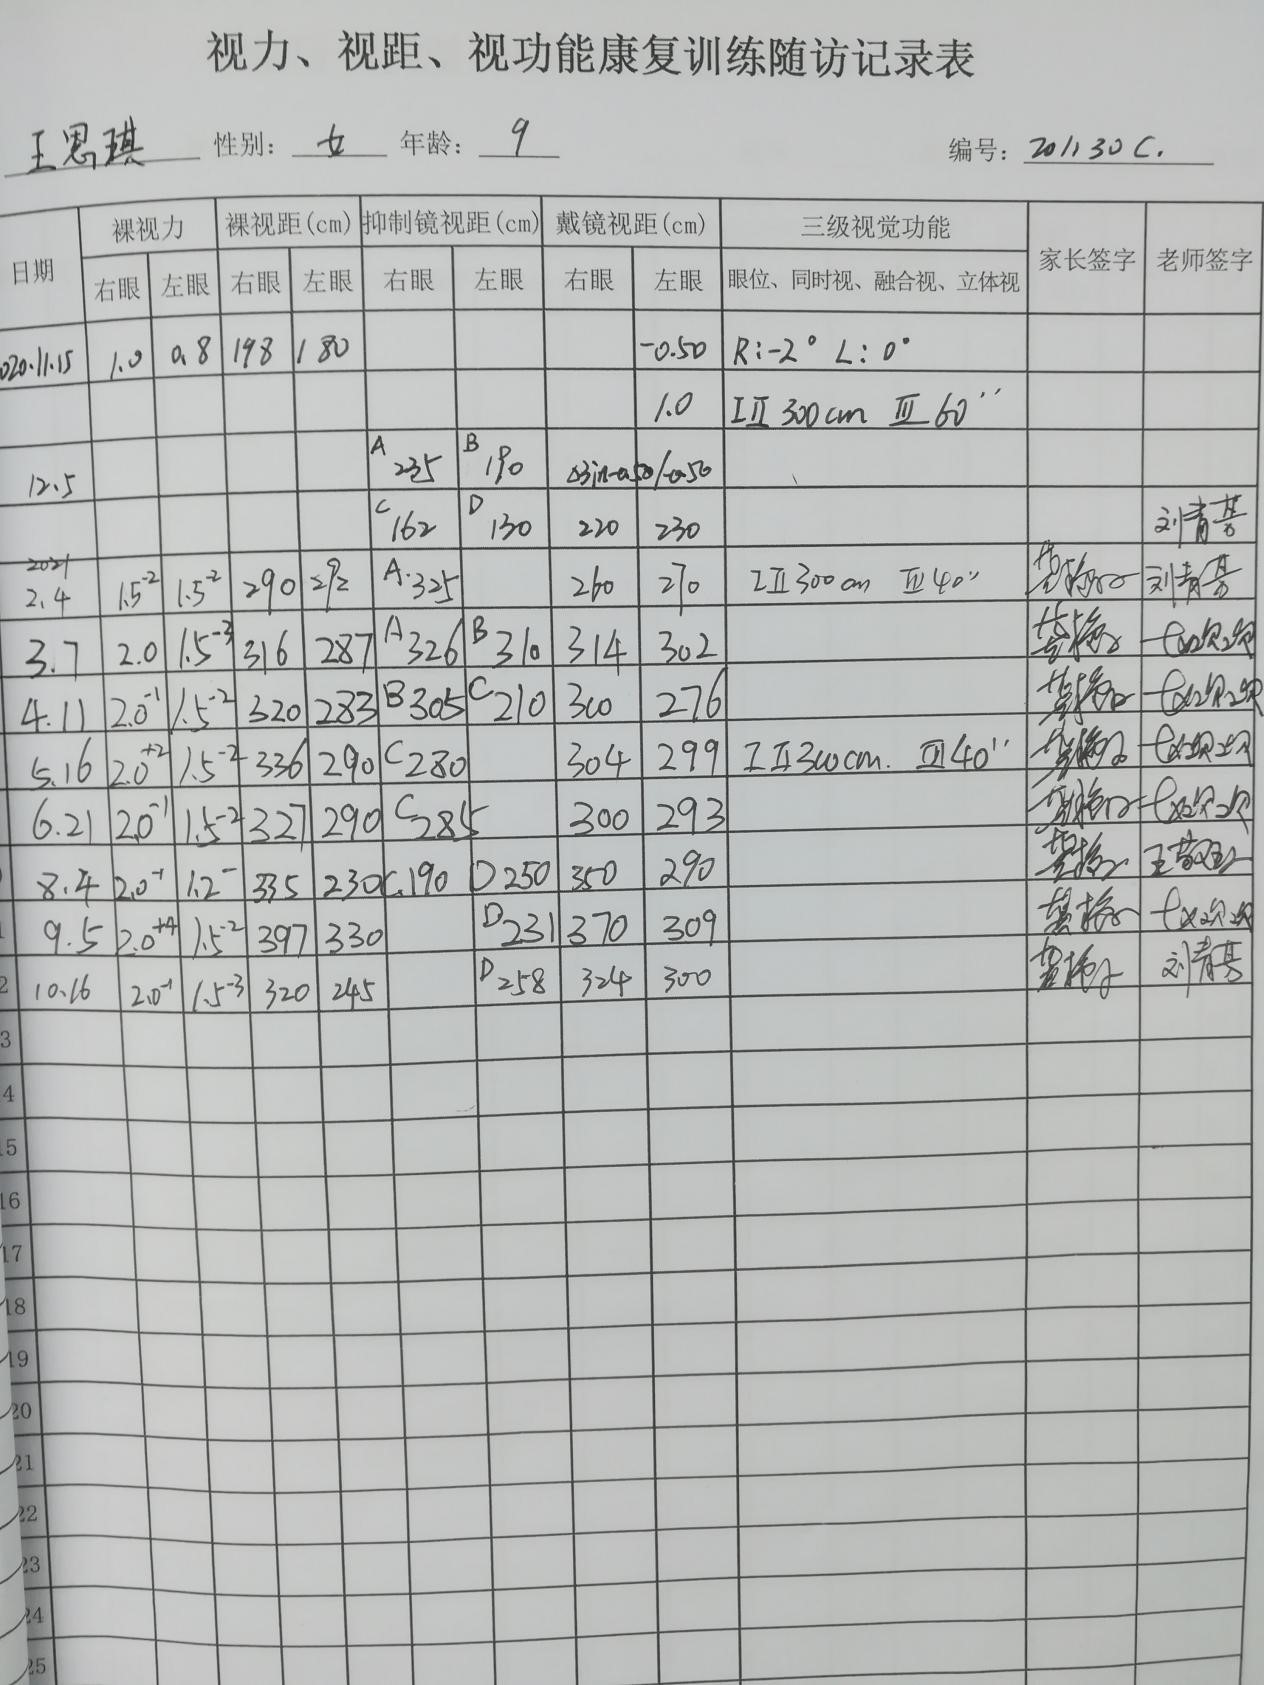 视力、视距、视功能康复训练随访记录表
王思琪 性别: 女 年龄: 9 编号: 201130C.
日期 裸视力 裸视距(cm) 抑制镜视距(cm) 戴镜视距(cm) 三级视觉功能 家长签字 老师签字
右眼 左眼 右眼 左眼 右眼 左眼 右眼 左眼 眼位、同时视、融合视、立体视
020.11.15 1.0 0.8 198 180 -0.50 R:-2° L:0°
1.0 I II 300cm III 60''
12.5 A 235 B 190
C 162 D 130 220 230 刘青
2021
2.4 1.5-2 1.5-2 290 292 A.325 260 270 I II 300cm III 40'' 刘青
3.7 2.0 1.5-3 316 287 A 326 B 310 314 302
4.11 2.0-1 1.5-2 320 283 B 305 C 210 300 276
5.16 2.0+2 1.5-2 336 290 C 280 304 299 I II 300cm. III 40''
6.21 2.0-1 1.5-2 327 290 C 285 300 293
8.4 2.0-1 1.2- 335 230 C.190 D 250 350 290
9.5 2.0+4 1.5-2 397 330 D 231 370 309
2 10.16 2.0-1 1.5-3 320 245 D 258 324 300 刘青
3
4
15
16
17
18
19
20
21
22
23
24
25